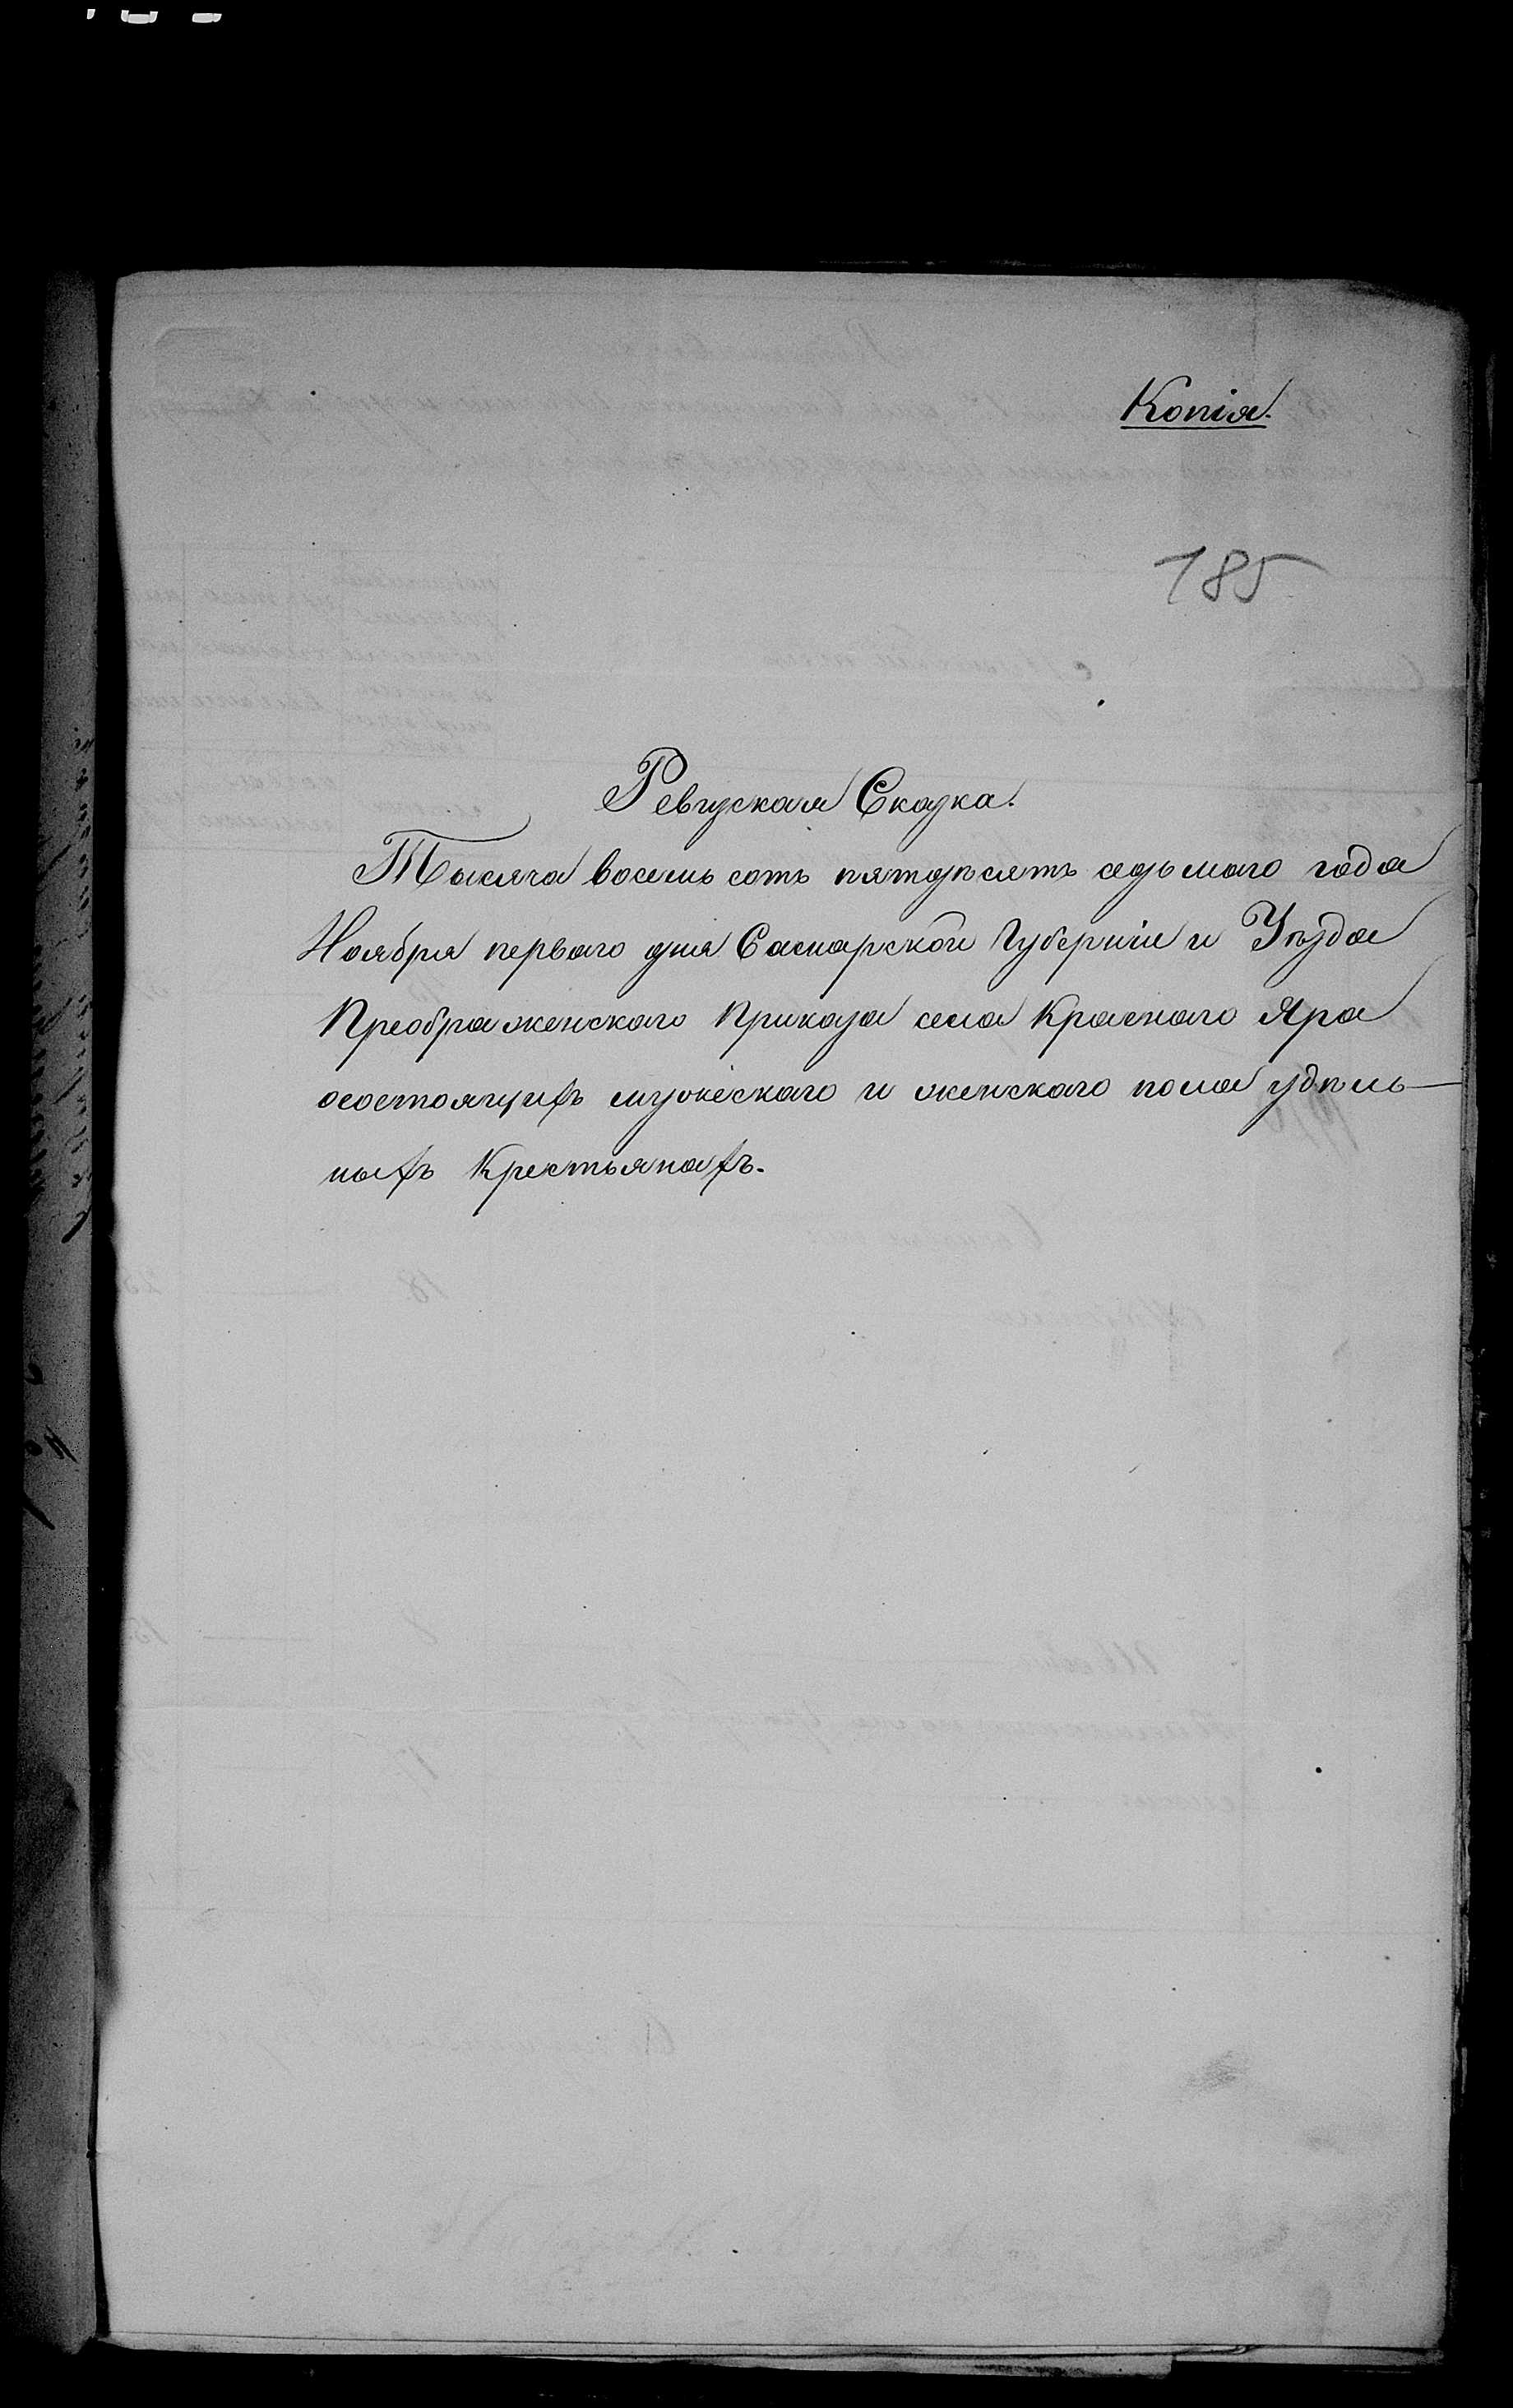 Копія.
185
Ревизская Сказка.
Тысяча восемь сотъ пятдѣсятъ седьмаго года
Ноября перваго дня Самарской Губерніи и Уѣзда
Преображенскаго Приказа села Краснаго Яра
осостоящихъ мужескаго и женскаго пола удѣль-
ныхъ Крестьянахъ.